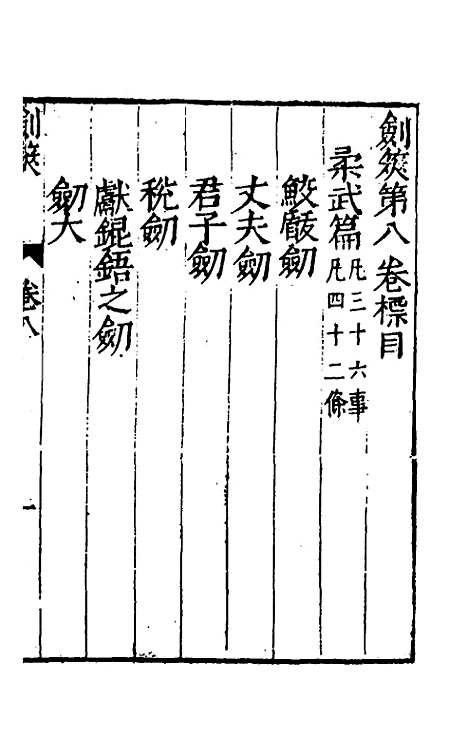 劍筴第八卷標目
柔武篇凡三十六事
凡四十二條
鮫瞂劒
丈夫劒
君子劒
稅劒
獻錕鋙之劒
劒大
劍筴
卷八
一